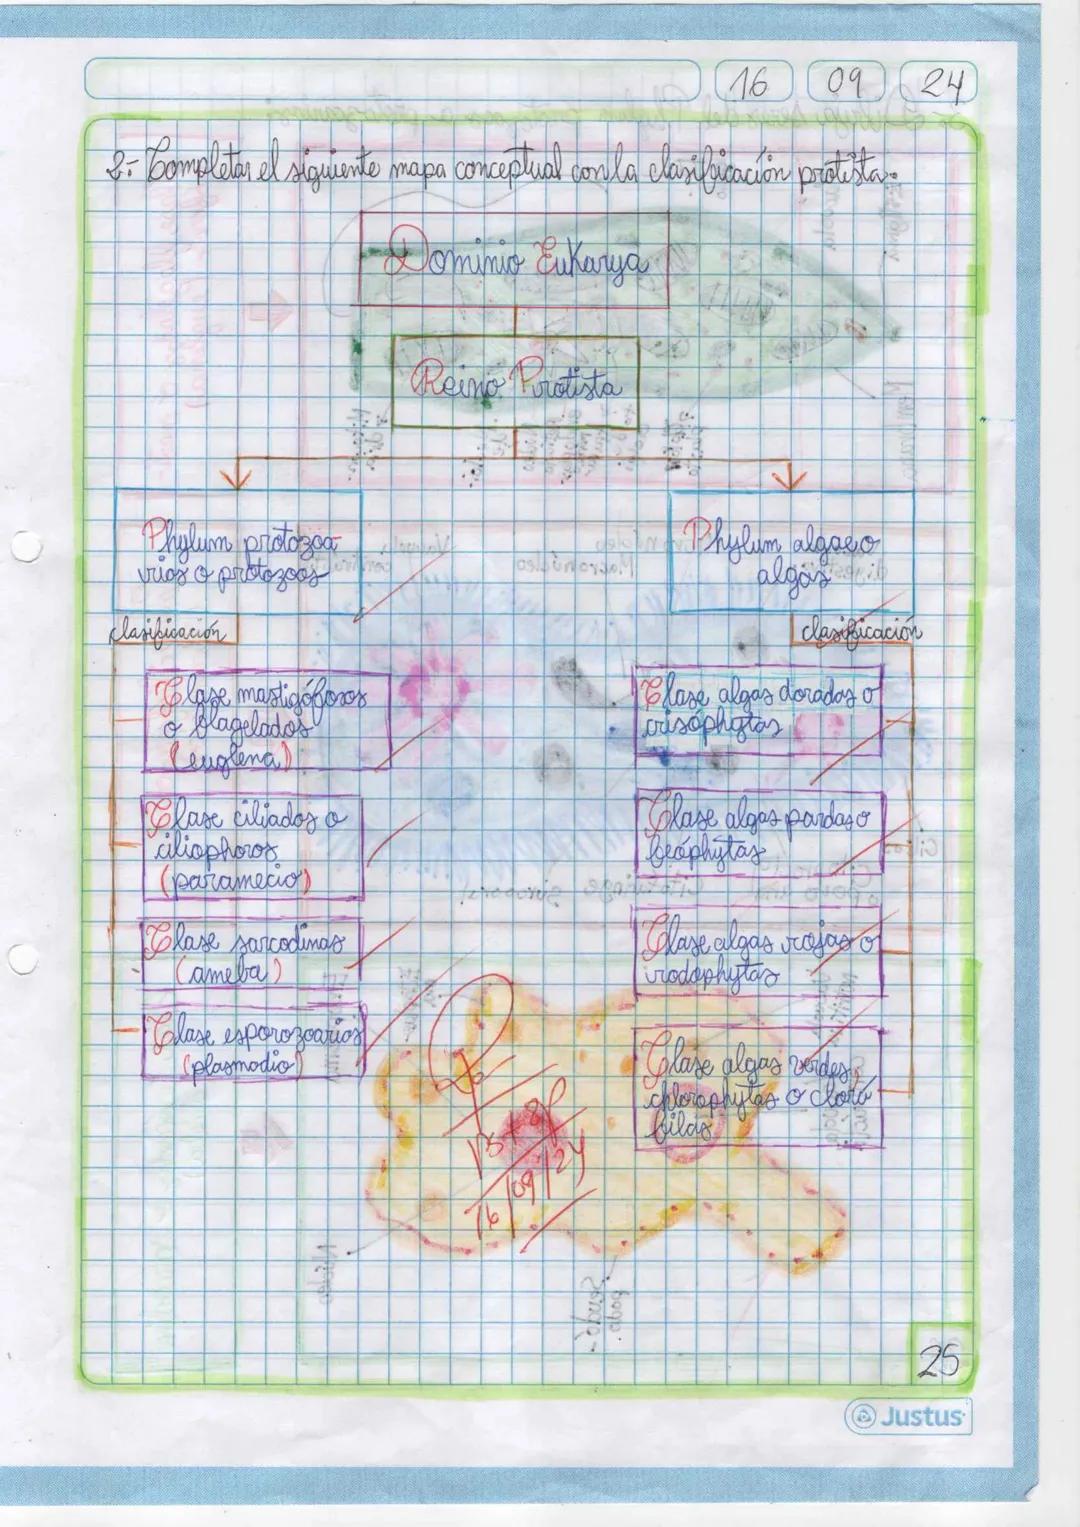 16 09 24
2.- Completar el siguiente mapa conceptual con la clasificación protista.
Dominio Eukarya
Reino Protista
Phylum protozoa-
rios o protozoos
Phylum algae o
algas
clasificación
clasificación
Clase mastigóforos
o flagelados
(euglena)
Clase ciliados o
cilióphoros
(paramecio)
Clase sarcodinas
(ameba)
Clase esporozoarios
(plasmodio)
Clase algas doradas o
crisóphytas
Clase algas pardas o
feóphytas
Clase algas rojas o
rodóphytas
Clase algas verdes,
chlorophytas o cloró
filas
16/09/24
25
Justus